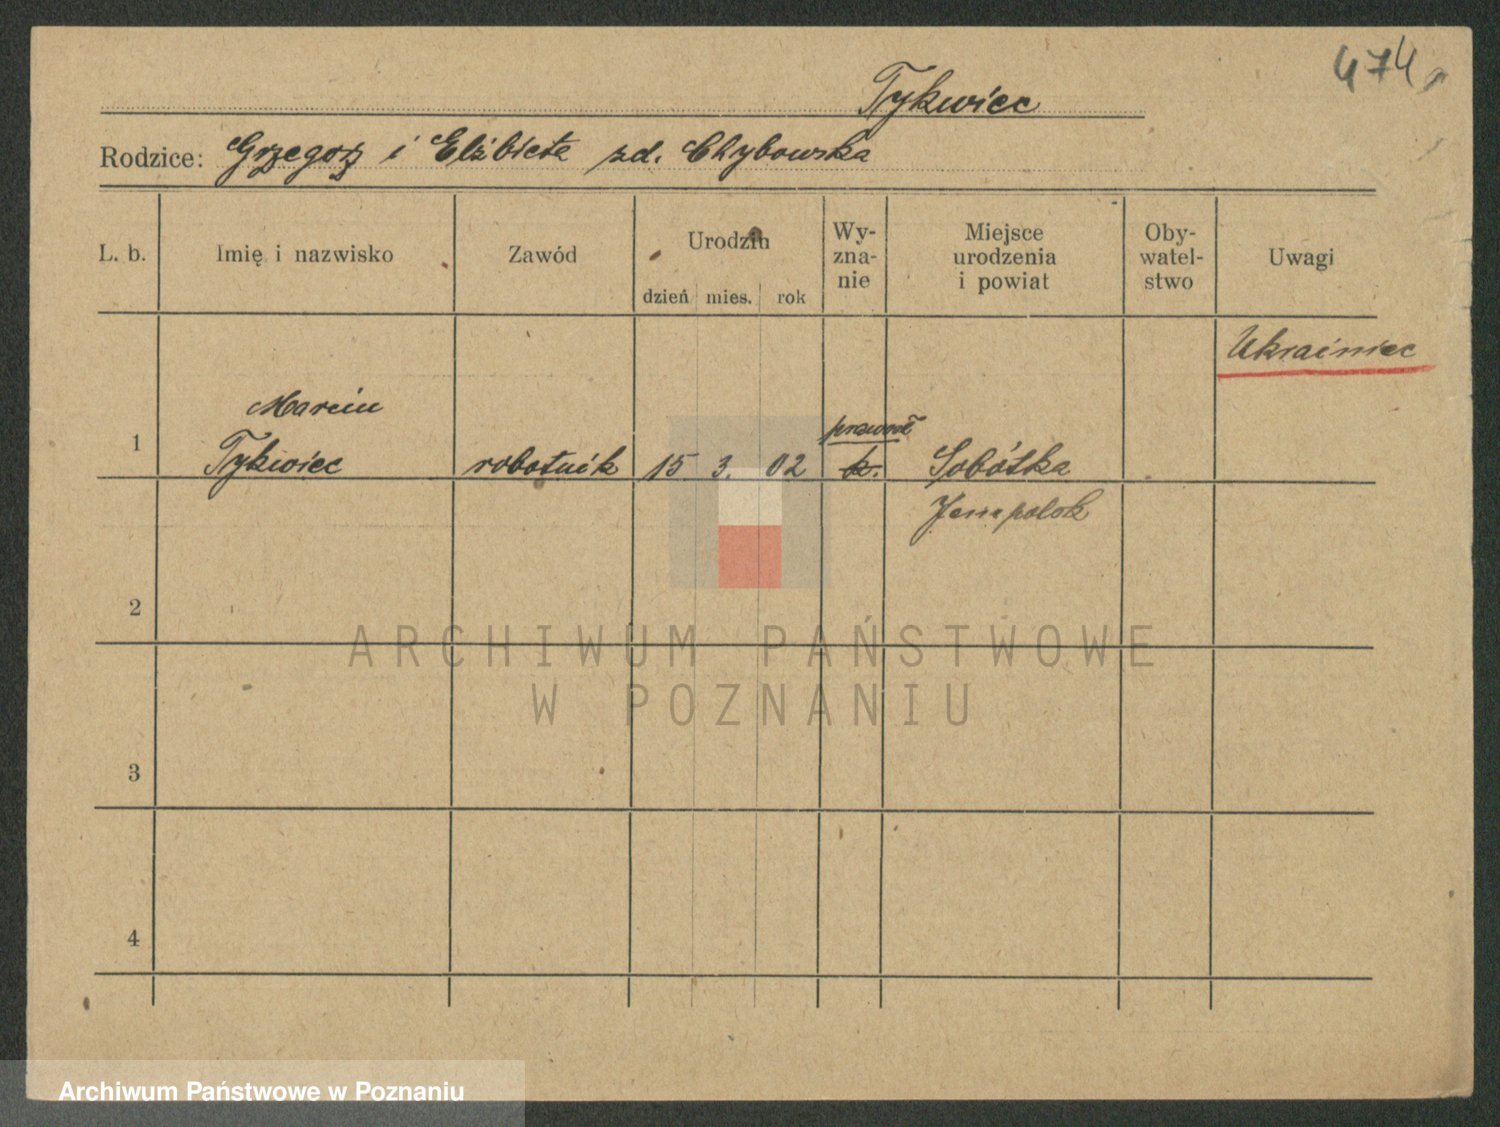 474
Tykwiec
Rodzice: Grzegorz i Elżbieta zd. Chybowska
L. b.
Imię i nazwisko
Zawód
Urodzin
dzień mies. rok
Wy-
zna-
nie
Miejsce
urodzenia
i powiat
Oby-
watel-
stwo
Uwagi
Ukrainiec
1
Marcin
Tykwiec
robotnik
15 3. 02
prawosł
k.
Sobótka
2
3
4
ARCHIWUM PAŃSTWOWE
W POZNANIU
Archiwum Państwowe w Poznaniu